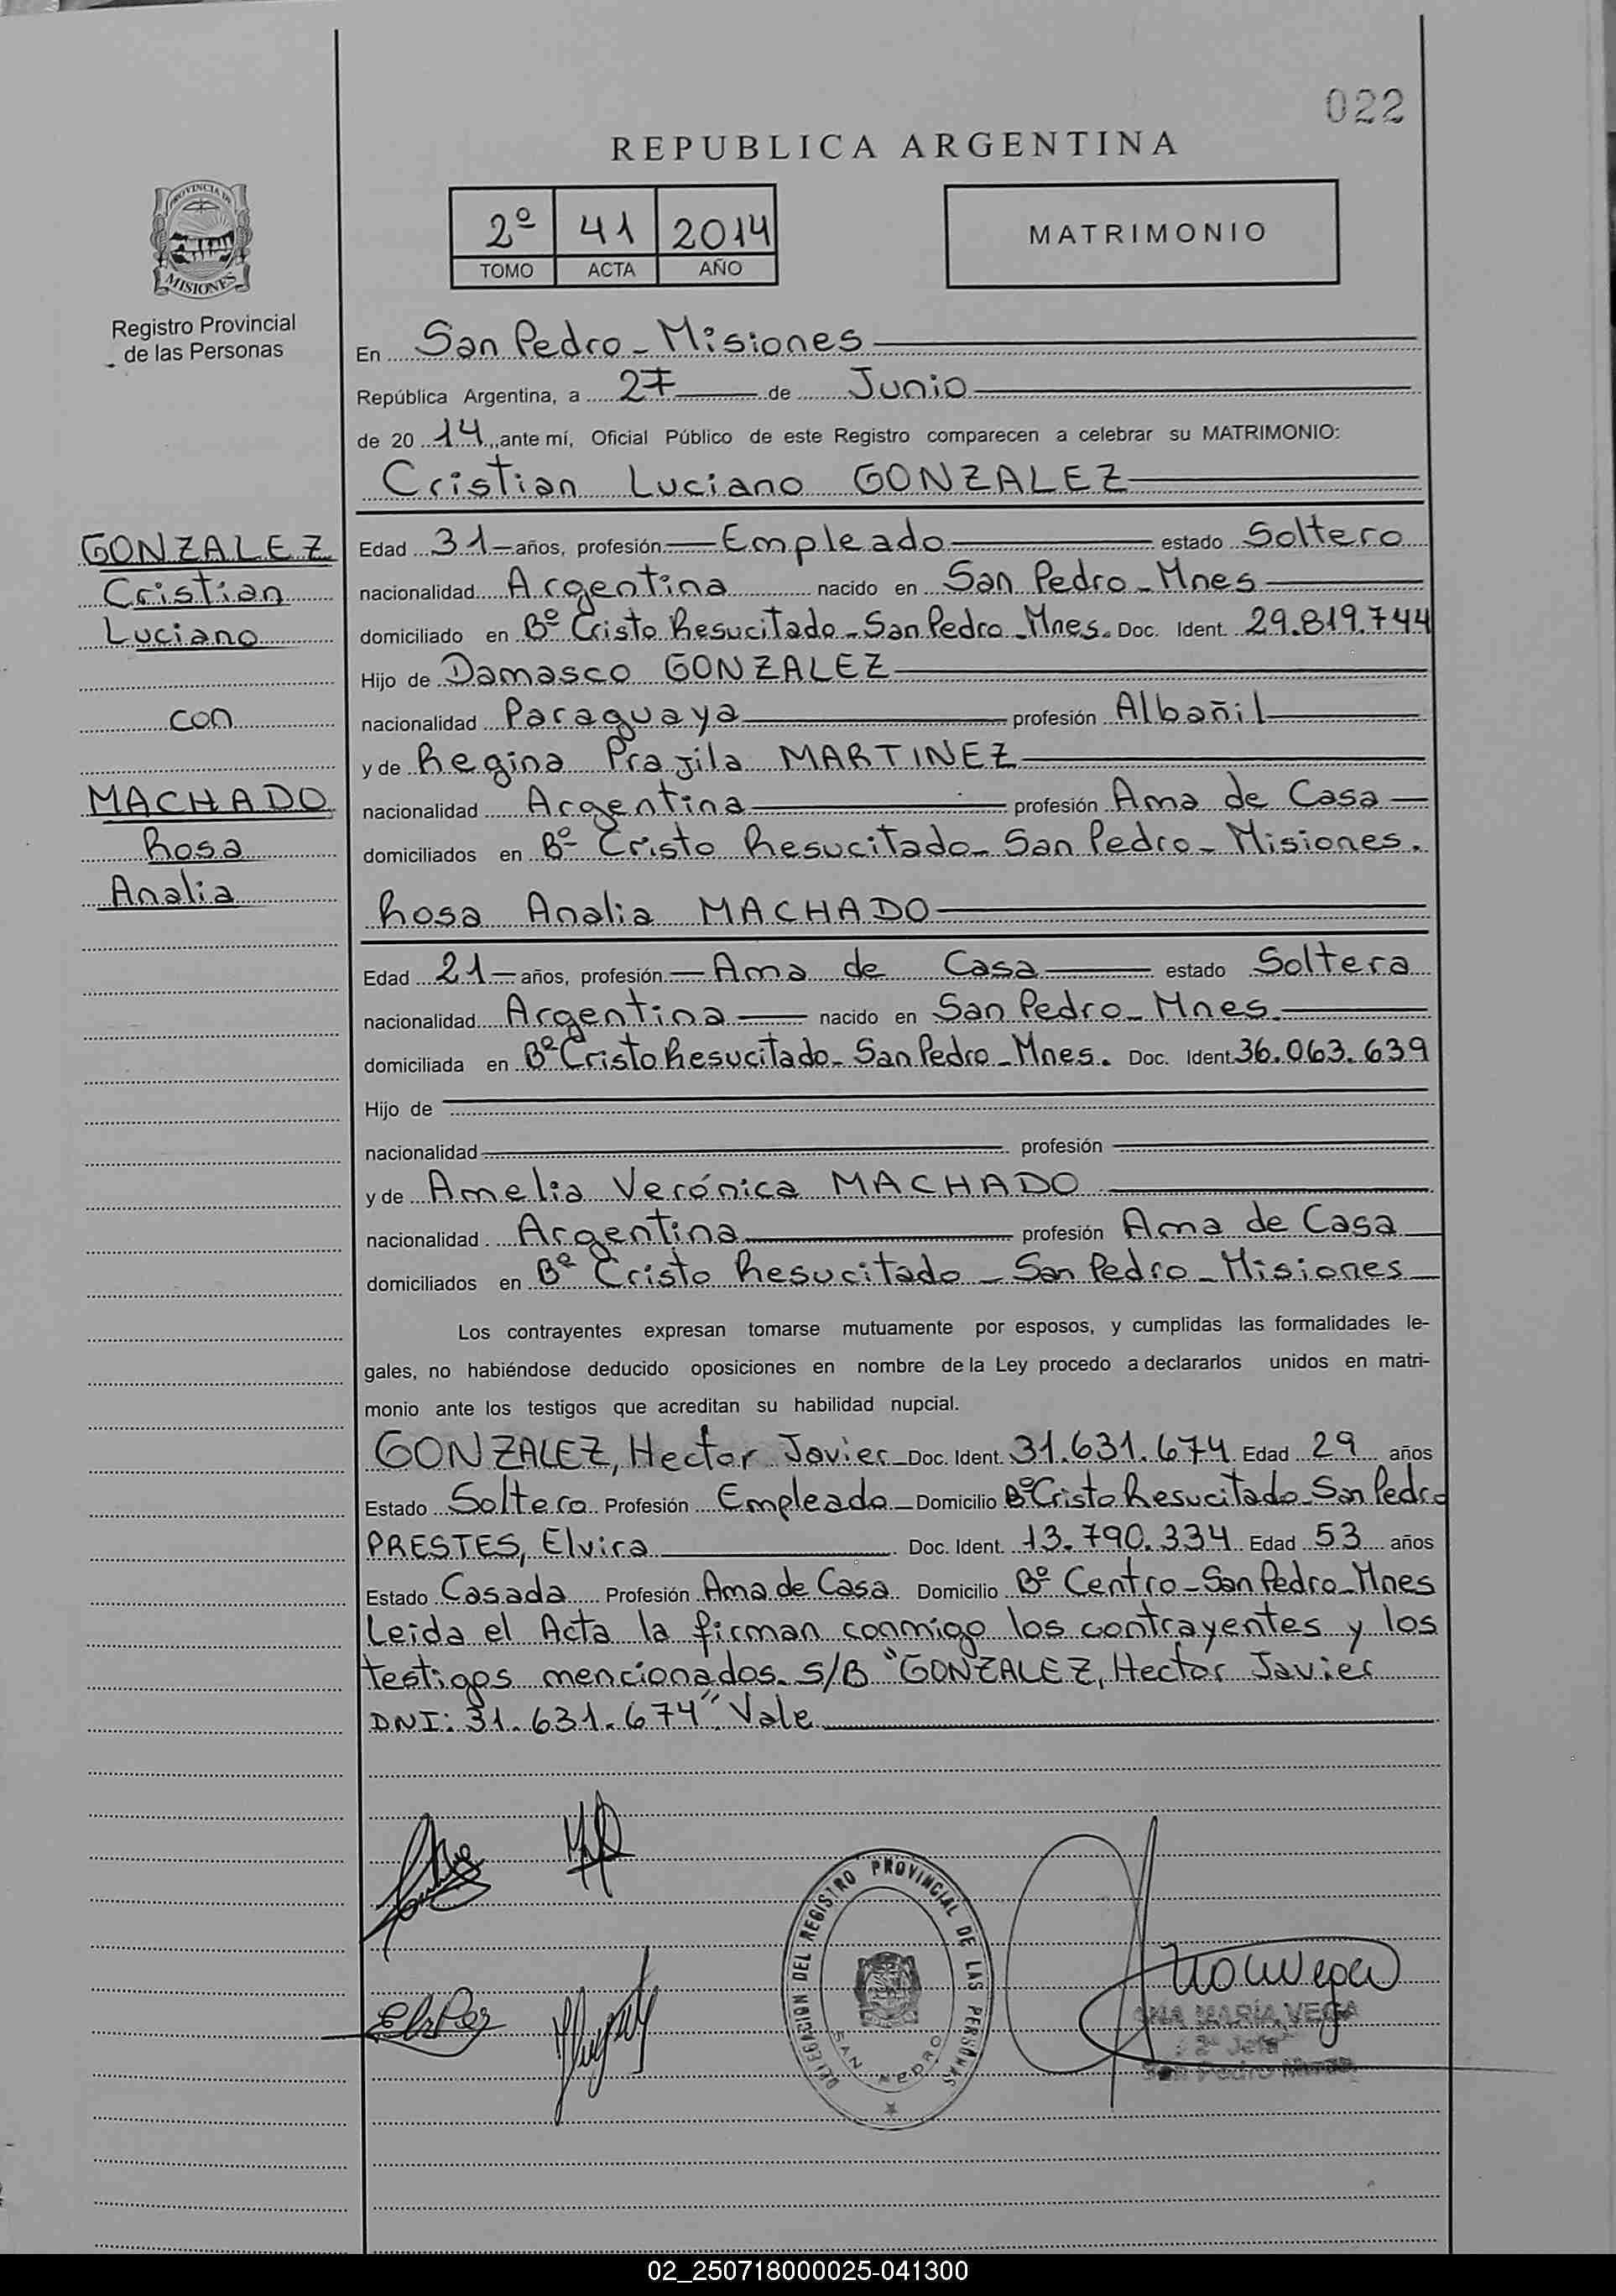 022
REPUBLICA ARGENTINA
2º 41 2014
TOMO ACTA AÑO
MATRIMONIO
PROVINCIA DE
MISIONES
Registro Provincial
de las Personas
En San Pedro - Misiones
República Argentina, a 27 de Junio
de 20 14 ante mí, Oficial Público de este Registro comparecen a celebrar su MATRIMONIO:
Cristian Luciano GONZALEZ
GONZALEZ
Cristian
Luciano
con
MACHADO
Rosa
Analia
Edad 31 años, profesión Empleado estado Soltero
nacionalidad Argentina nacido en San Pedro - Mnes
domiciliado en Bº Cristo Resucitado - San Pedro - Mnes. Doc. Ident. 29.819.744
Hijo de Damasco GONZALEZ
nacionalidad Paraguaya profesión Albañil
y de Regina Prajila MARTINEZ
nacionalidad Argentina profesión Ama de Casa
domiciliados en Bº Cristo Resucitado - San Pedro - Misiones.
Rosa Analia MACHADO
Edad 21 años, profesión Ama de Casa estado Soltera
nacionalidad Argentina nacido en San Pedro - Mnes.
domiciliada en Bº Cristo Resucitado - San Pedro - Mnes. Doc. Ident 36.063.639
Hijo de
nacionalidad profesión
y de Amelia Verónica MACHADO
nacionalidad Argentina profesión Ama de Casa
domiciliados en Bº Cristo Resucitado - San Pedro - Misiones
Los contrayentes expresan tomarse mutuamente por esposos, y cumplidas las formalidades le-
gales, no habiéndose deducido oposiciones en nombre de la Ley procedo a declararlos unidos en matri-
monio ante los testigos que acreditan su habilidad nupcial.
GONZALEZ, Hector Javier Doc. Ident. 31.631.674 Edad 29 años
Estado Soltero Profesión Empleado Domicilio Bº Cristo Resucitado - San Pedro
PRESTES, Elvira Doc. Ident. 13.790.334 Edad 53 años
Estado Casada Profesión Ama de Casa Domicilio Bº Centro - San Pedro - Mnes
Leida el Acta la firman conmigo los contrayentes y los
testigos mencionados. S/B "GONZALEZ, Hector Javier
DNI: 31.631.674". Vale
DELEGACION DEL REGISTRO PROVINCIAL DE LAS PERSONAS
SAN PEDRO
ANA MARÍA VEGA
2ª Jefa
San Pedro Mnes.
02_250718000025-041300